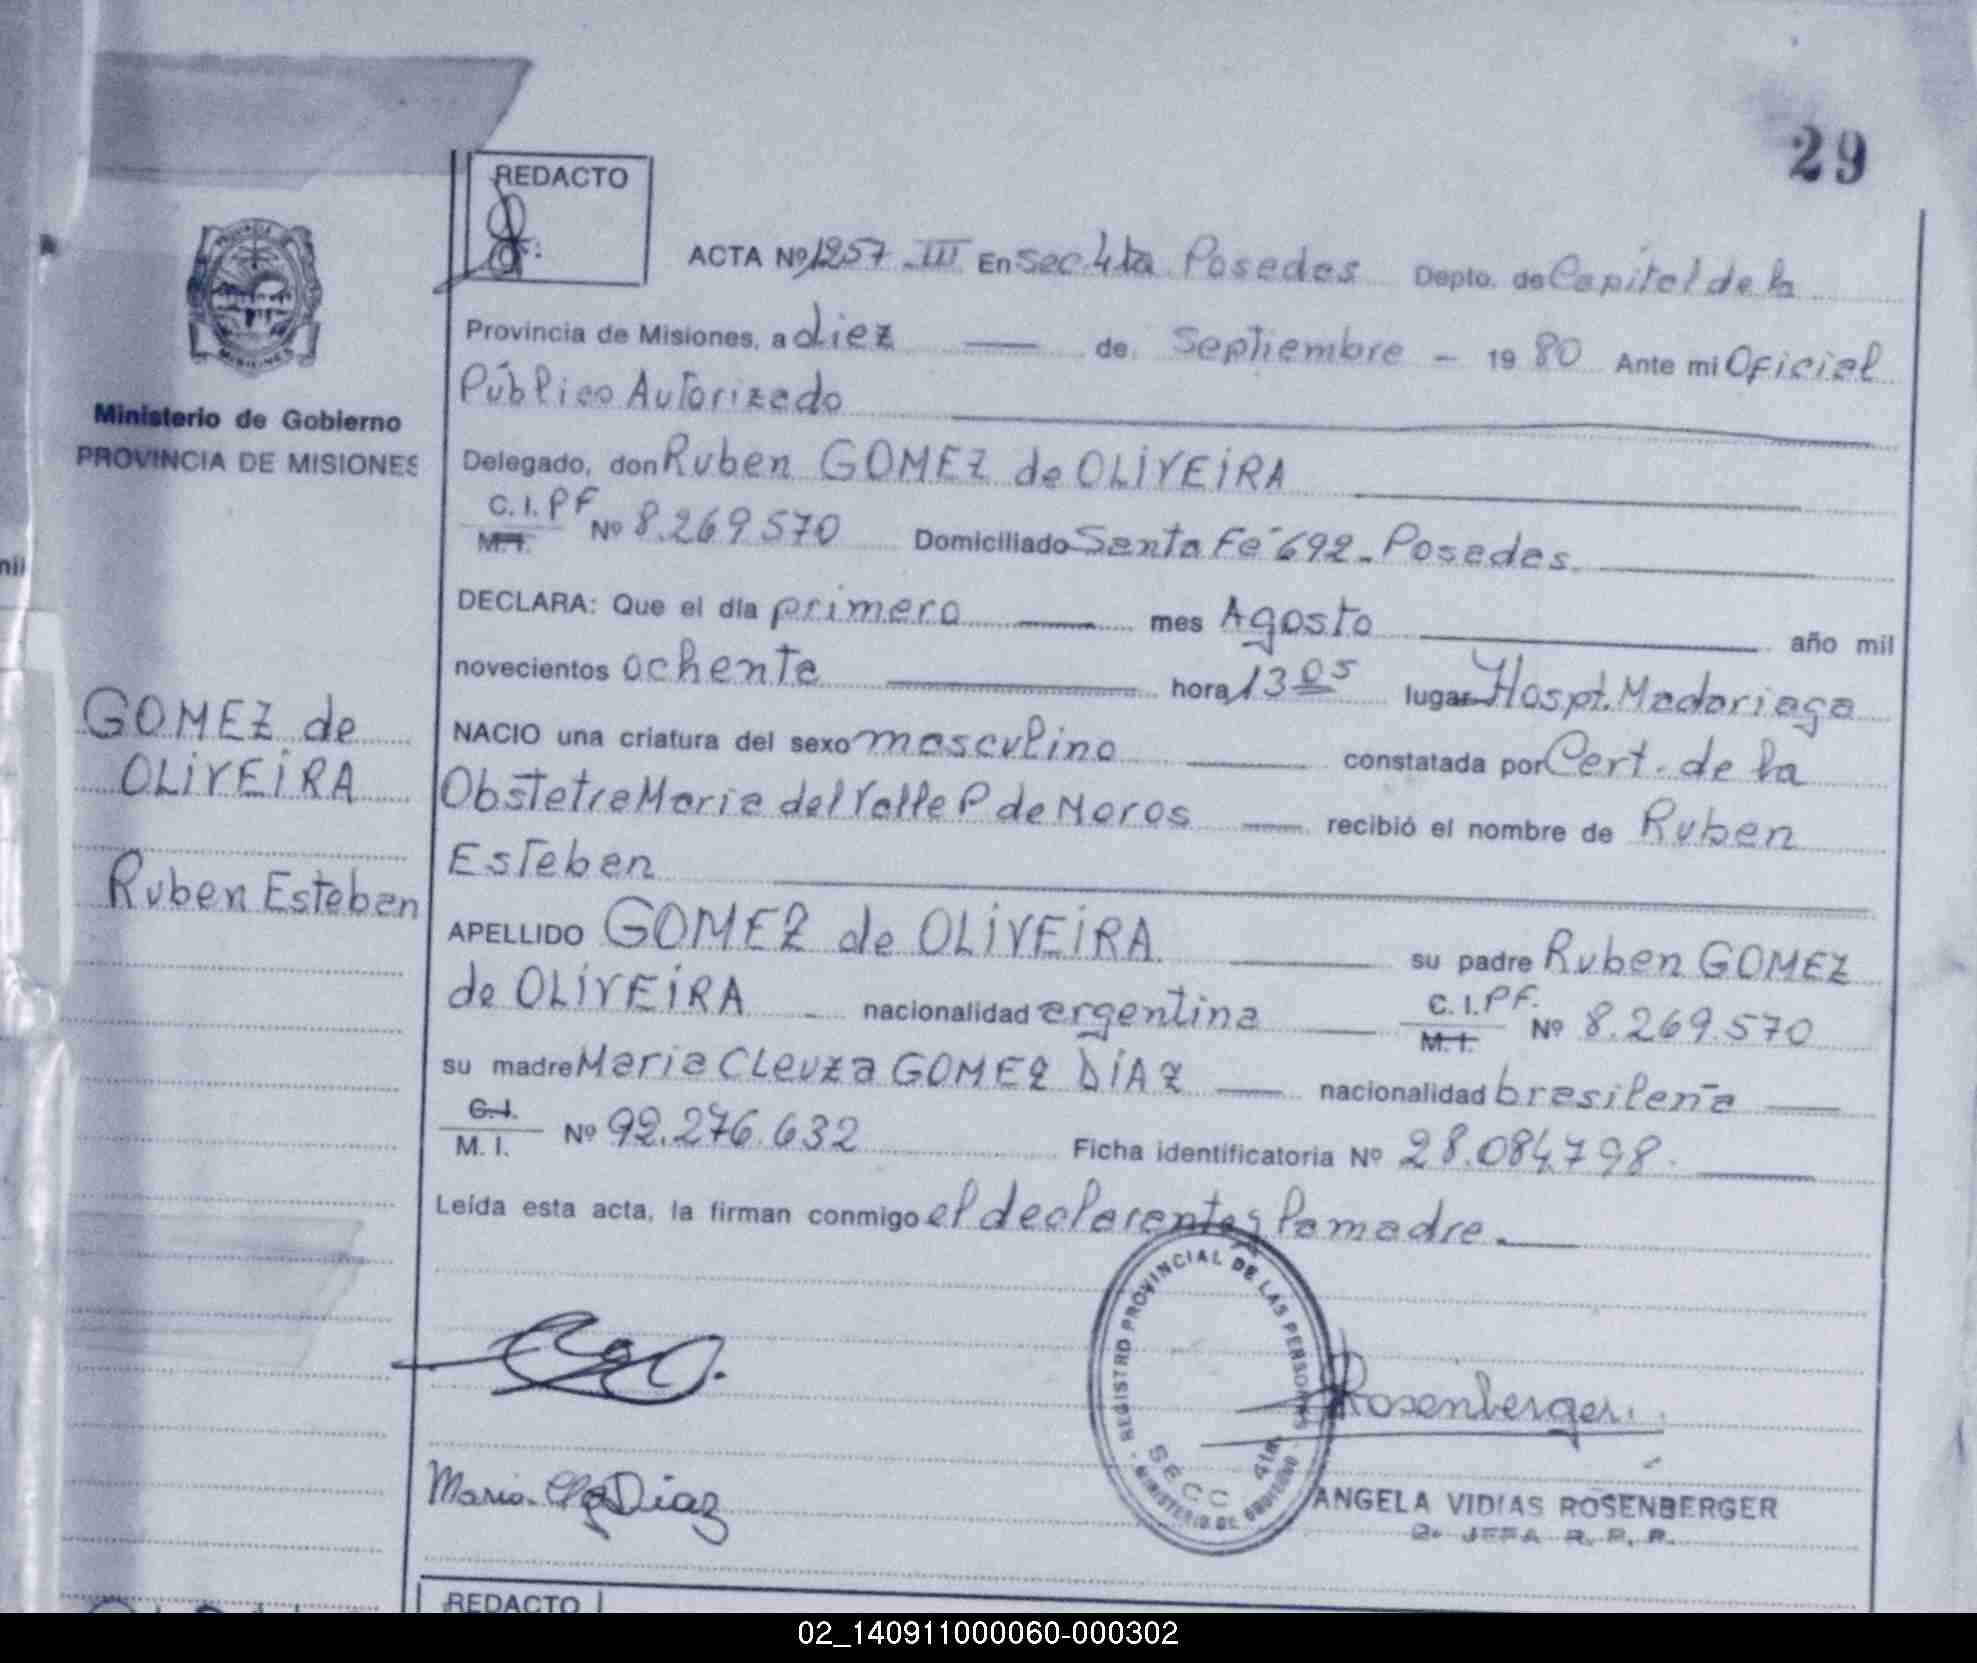 29
REDACTO
ACTA Nº 1257 III En sec 4ta Posadas Depto. de Capital de la
Provincia de Misiones, a diez — de Septiembre - 1980 Ante mi Oficial
Público Autorizado
Delegado, don Ruben GOMEZ de OLIVEIRA
C. I. PF
M. I. Nº 8.269.570 Domiciliado Santa Fé 692 - Posadas.
DECLARA: Que el día primero — mes Agosto — año mil
novecientos ochenta — hora 13 05 lugar Hospt. Madariaga
NACIO una criatura del sexo masculino — constatada por Cert. de la
Obstetra Maria del Valle P de Moros — recibió el nombre de Ruben
Esteban
APELLIDO GOMEZ de OLIVEIRA — su padre Ruben GOMEZ
de OLIVEIRA - nacionalidad argentina — C. I. PF.
M. I. Nº 8.269.570
su madre Maria Cleuza GOMEZ DIAZ — nacionalidad brasileña —
C. I.
M. I. Nº 92.276.632 Ficha identificatoria Nº 28.084.798. —
Leída esta acta, la firman conmigo el declarante y la madre. —
PROVINCIA
MISIONES
Ministerio de Gobierno
PROVINCIA DE MISIONES
GOMEZ de
OLIVEIRA
Ruben Esteban
REGISTRO PROVINCIAL DE LAS PERSONAS
SECC 4ta
MINISTERIO DE GOBIERNO
Rosenberger
Diaz
ANGELA VIDIAS ROSENBERGER
2º JEFA R. P. P.
REDACTO
02_140911000060-000302